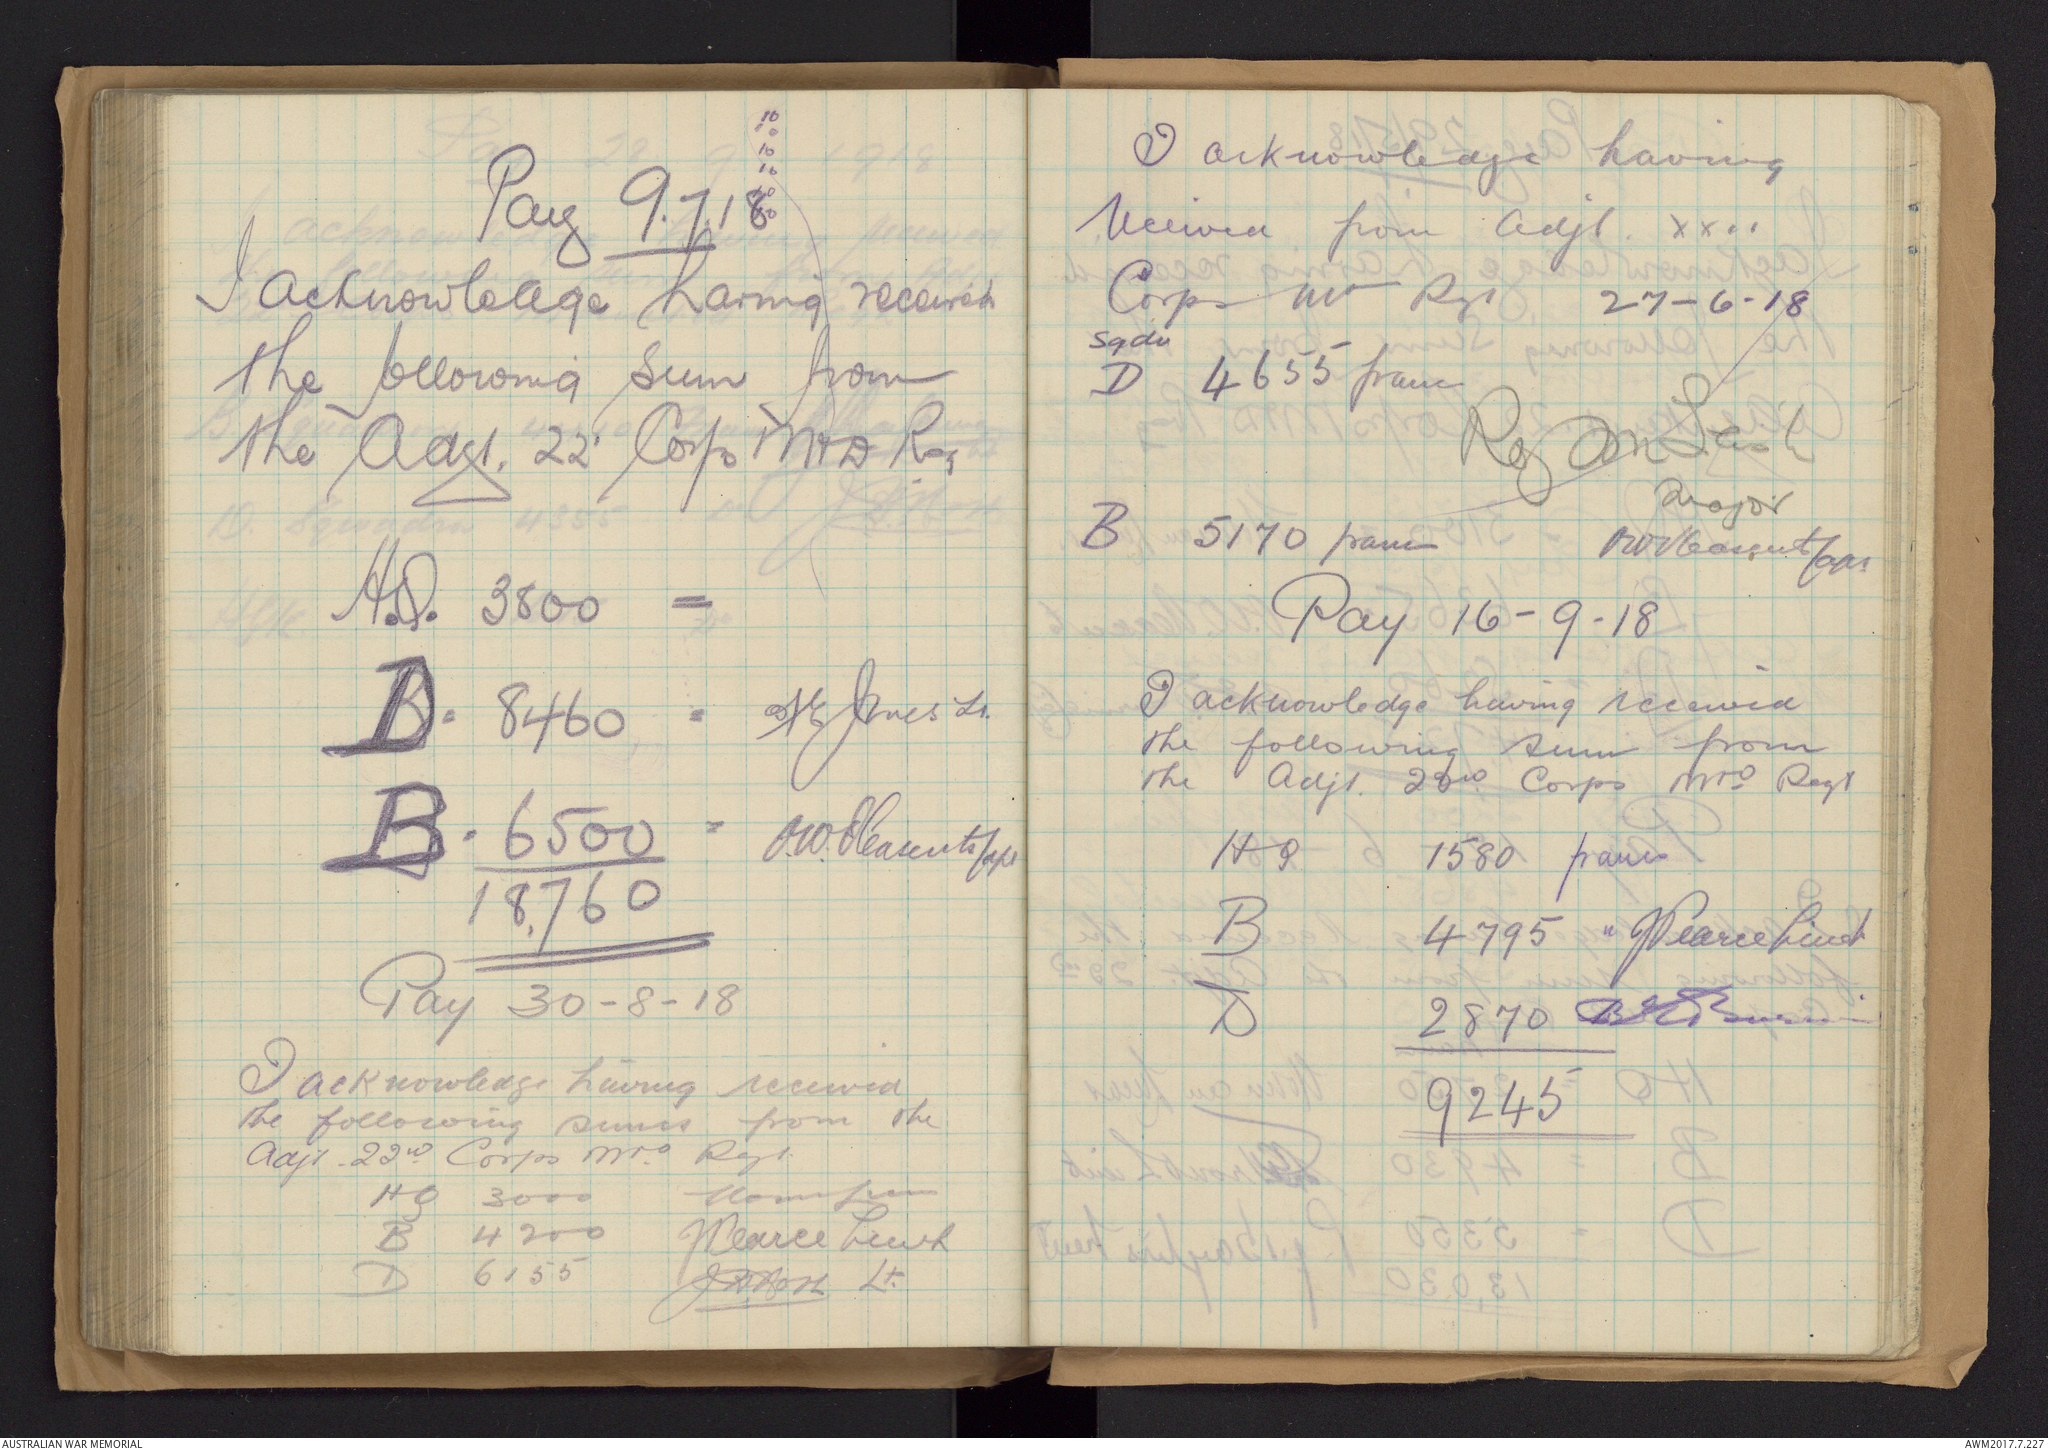 10
10
10
10
10
50
Pay 9.7.18
I acknowledge having received
the following sum from
the Adjt. 22 Corps Mtd Reg
H.Q. 3800 =
D. 8460 = Jones Lt.
B. 6500 = Pleasents/Capt
18,760
Pay 30-8-18
I acknowledge having received
the following sums from the
Adjt. 22nd Corps Mtd Regt.
HQ 3000
B 4200 J Pearce Lieut
D 6155 Lt.
I acknowledge having
Received from Adjt. XXII
Corps Mtd Rgt 27-6-18
Sqdn
D 4655 francs
Major
B 5170 francs Pleasents/Capt
Pay 16-9-18
I acknowledge having received
the following sum from
the Adjt. 22nd Corps Mtd Regt
HQ 1580 francs
B 4795 " J Pearce Lieut
D 2870
9245
AUSTRALIAN WAR MEMORIAL
AWM2017.7.227